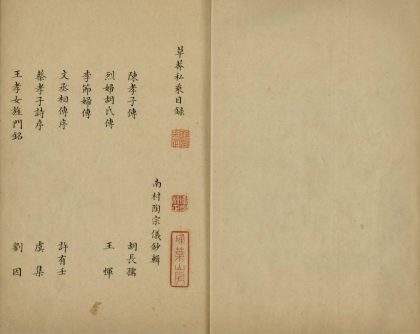 草莽私乘目錄
南村陶宗儀鈔輯
陳孝子傳 胡長孺
烈婦胡氏傳 王惲
李節婦傳
文丞相傳序 許有壬
蔡孝子詩序 虞集
王孝女旌門銘 劉因